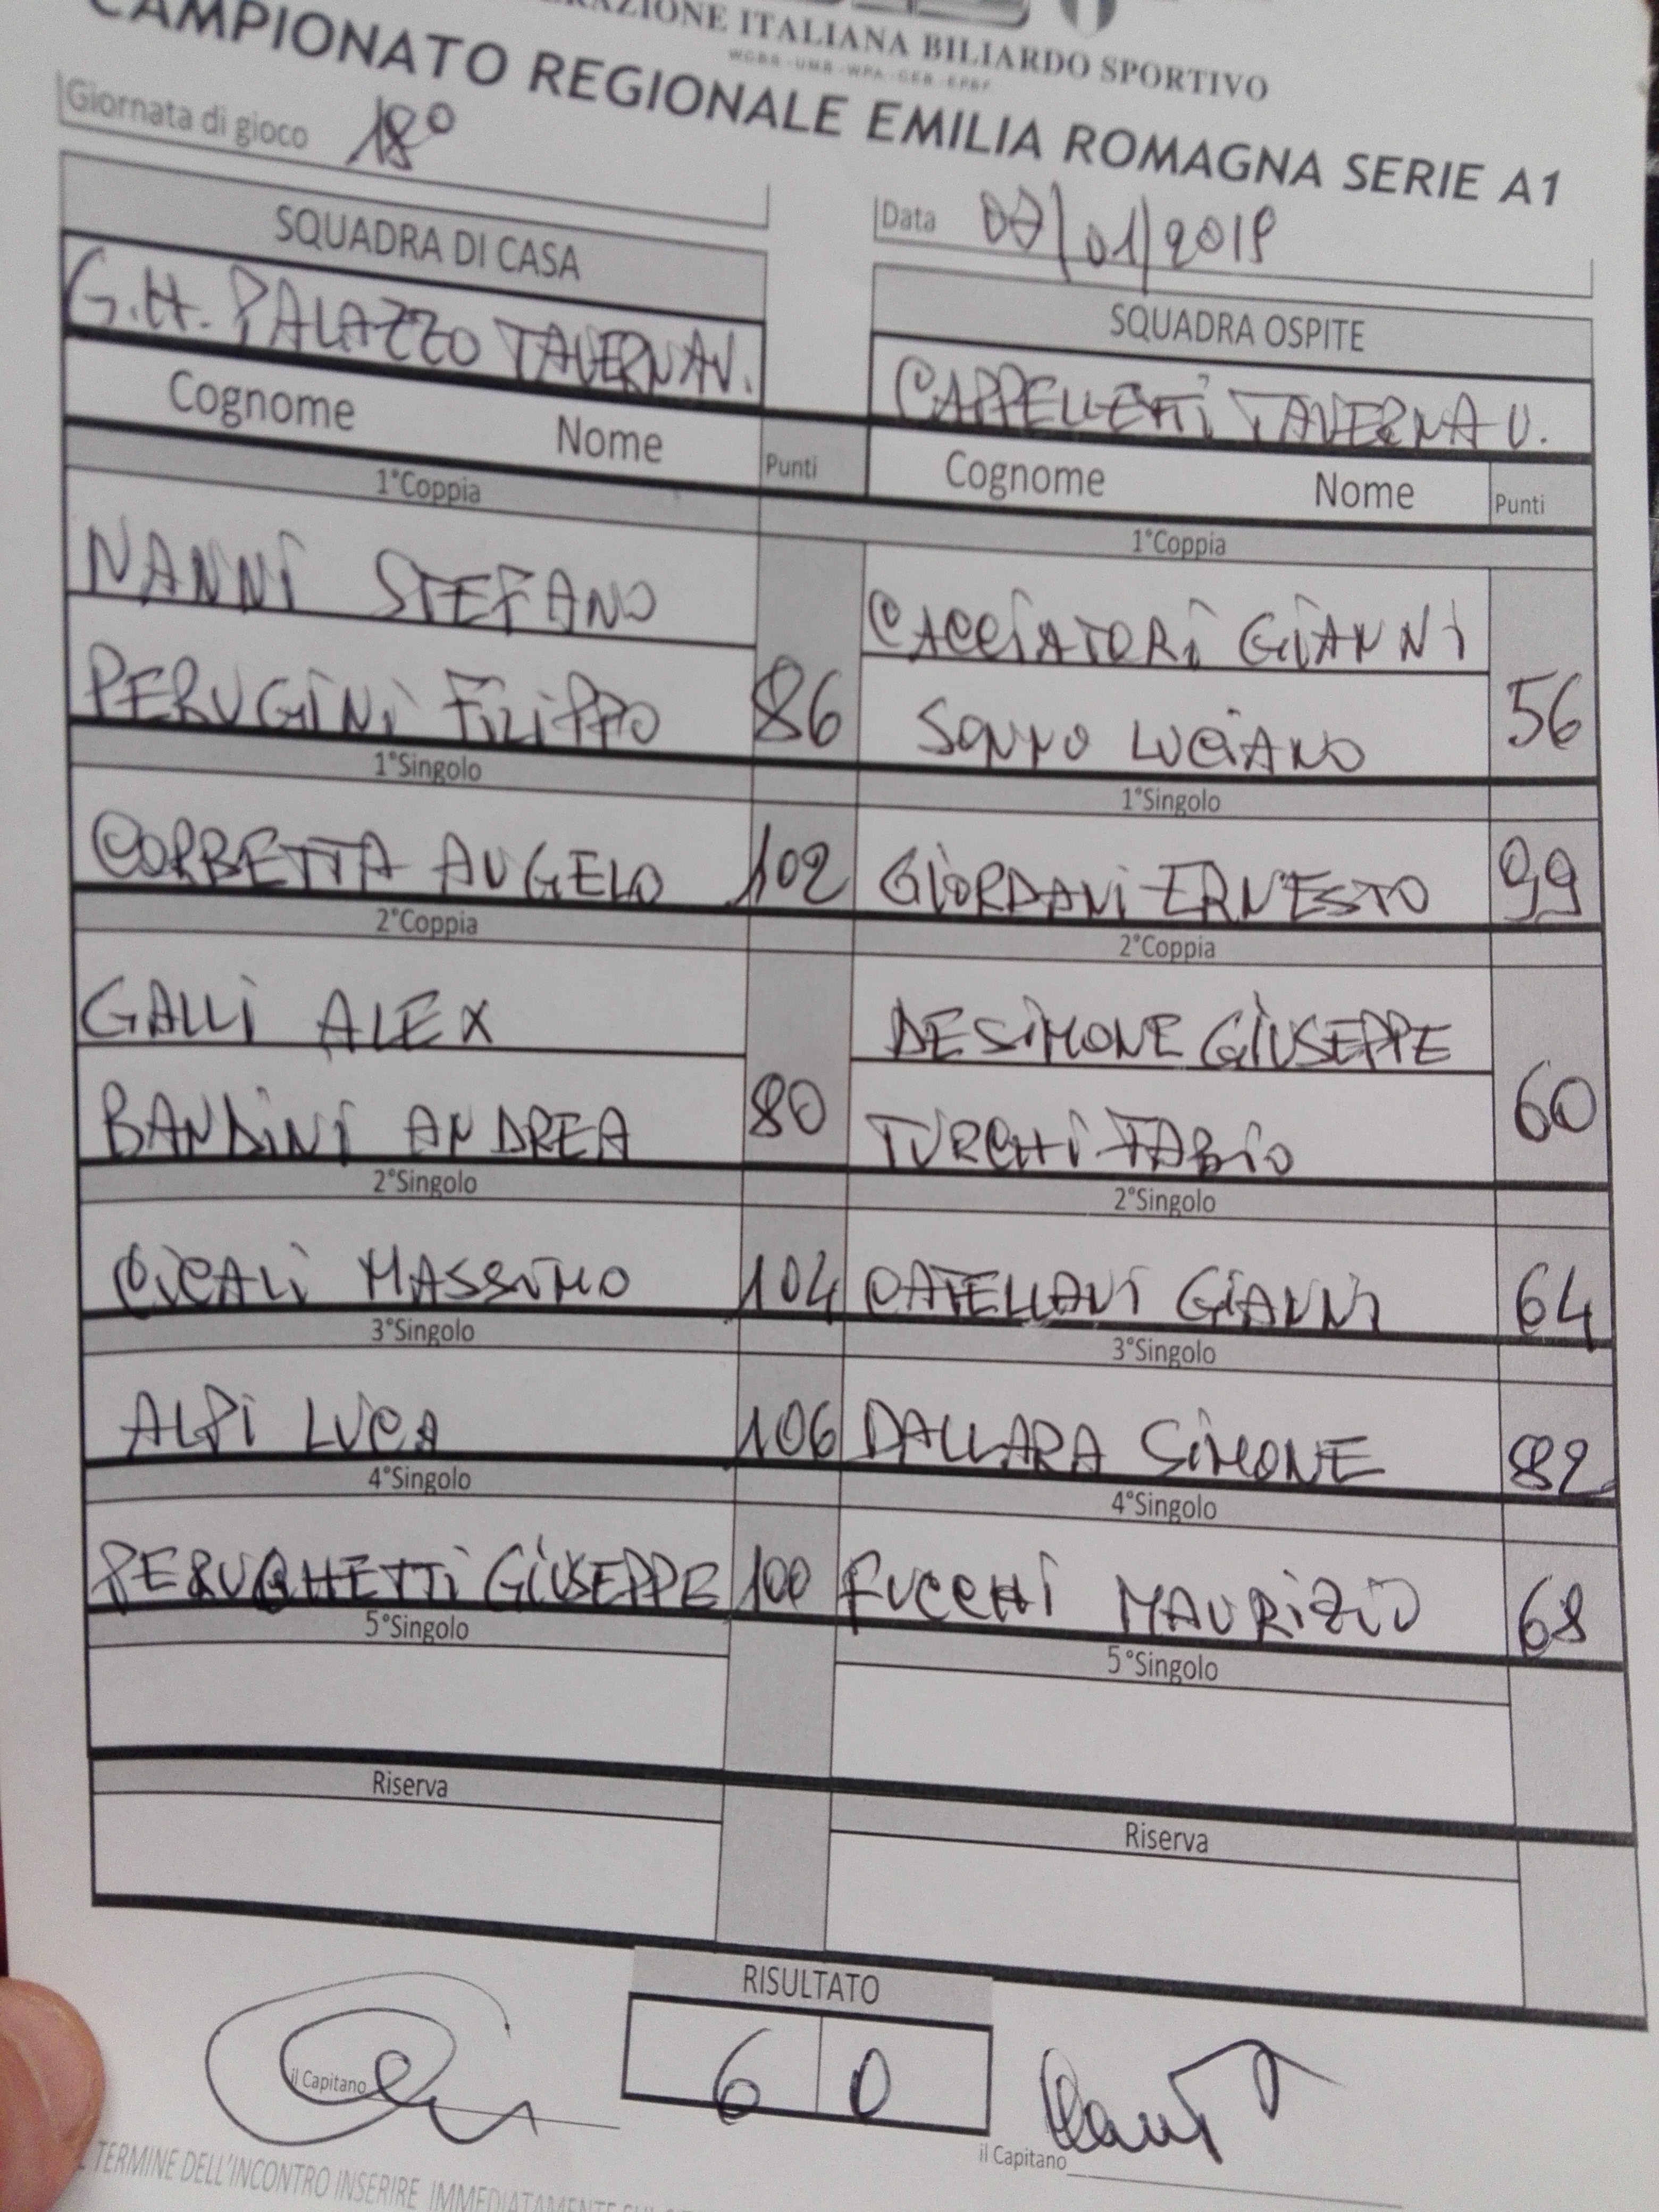 ERAZIONE ITALIANA BILIARDO SPORTIVO
CAMPIONATO REGIONALE EMILIA ROMAGNA SERIE A1
Giornata di gioco 18°
Data 07/01/2019
SQUADRA DI CASA
SQUADRA OSPITE
G.H. PALAZZO TAVERNA V.
CAPPELLETTI TAVERNA V.
Cognome Nome Punti
Cognome Nome Punti
1°Coppia
1°Coppia
NANNI STEFANO
CACCIATORI GIANNI
PERUGINI FILIPPO 86
SONNO LUCIANO 56
1°Singolo
1°Singolo
CORBETTA ANGELO 102
GIORDANI ERNESTO 99
2°Coppia
2°Coppia
GALLI ALEX
DE SIMONE GIUSEPPE
BANDINI ANDREA 80
TURCHI FABIO 60
2°Singolo
2°Singolo
CICALI MASSIMO 104
CATELLANI GIANNI 64
3°Singolo
3°Singolo
ALPI LUCA 106
DALLARA SIMONE 82
4°Singolo
4°Singolo
PERUGHETTI GIUSEPPE 100
FUCCHI MAURIZIO 68
5°Singolo
5°Singolo
Riserva
Riserva
RISULTATO
6 0
il Capitano
il Capitano
TERMINE DELL'INCONTRO INSERIRE IMMEDIATAMENTE